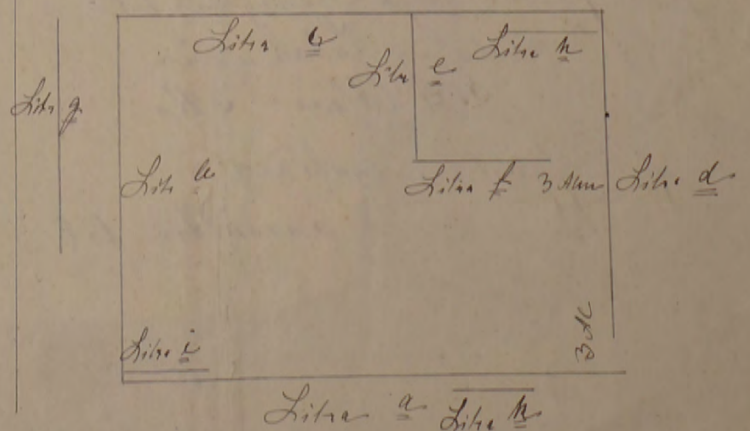 Litra c
Litra e
Litra h
Litr g
Litr b
Litra f 3 Alen
Litra d
3 Al
Litra i
Litra a
Litra k